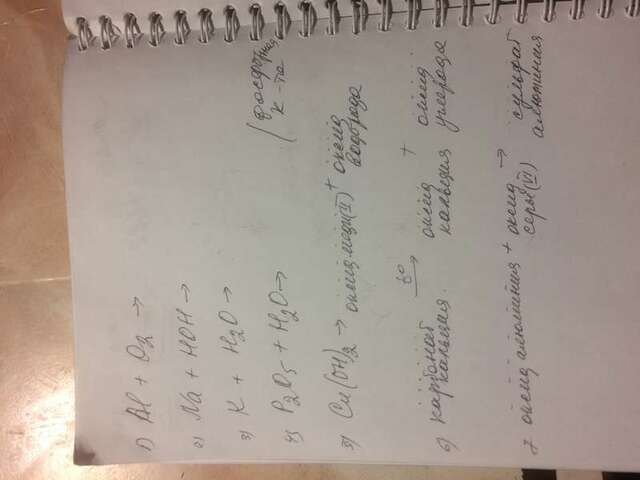 1) Al + O₂ →
2) Na + HOH →
3) K + H₂O →
4) P₂O₅ + H₂O → (фосфорная
к-та
5) Cu(OH)₂ → оксид меди(II) + оксид
водорода
6) карбонат t° → оксид + оксид
кальция. кальция углерода
7 оксид алюминия + оксид → сульфат
серы(VI) алюминия